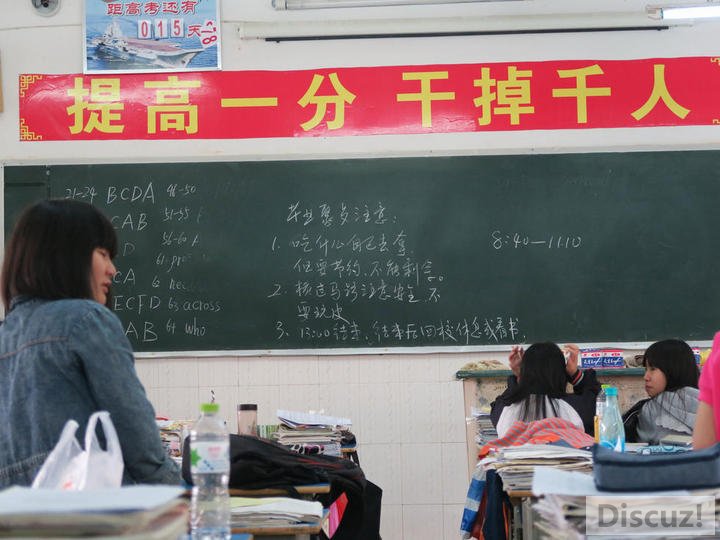 距高考还有
015天
提高一分 干掉千人
21-24 BCDA 46-50
毕业聚乡注意：
CAB 51-55
56-60
1. 吃什么自己去拿，
但要节约，不能剩余。
8:40—11:10
CA 62
2. 横过马路注意安全，不
要玩皮
ECFD 63 across
AB 64 who
3. 13:00结束，结束后回校休息或看书
Discuz!